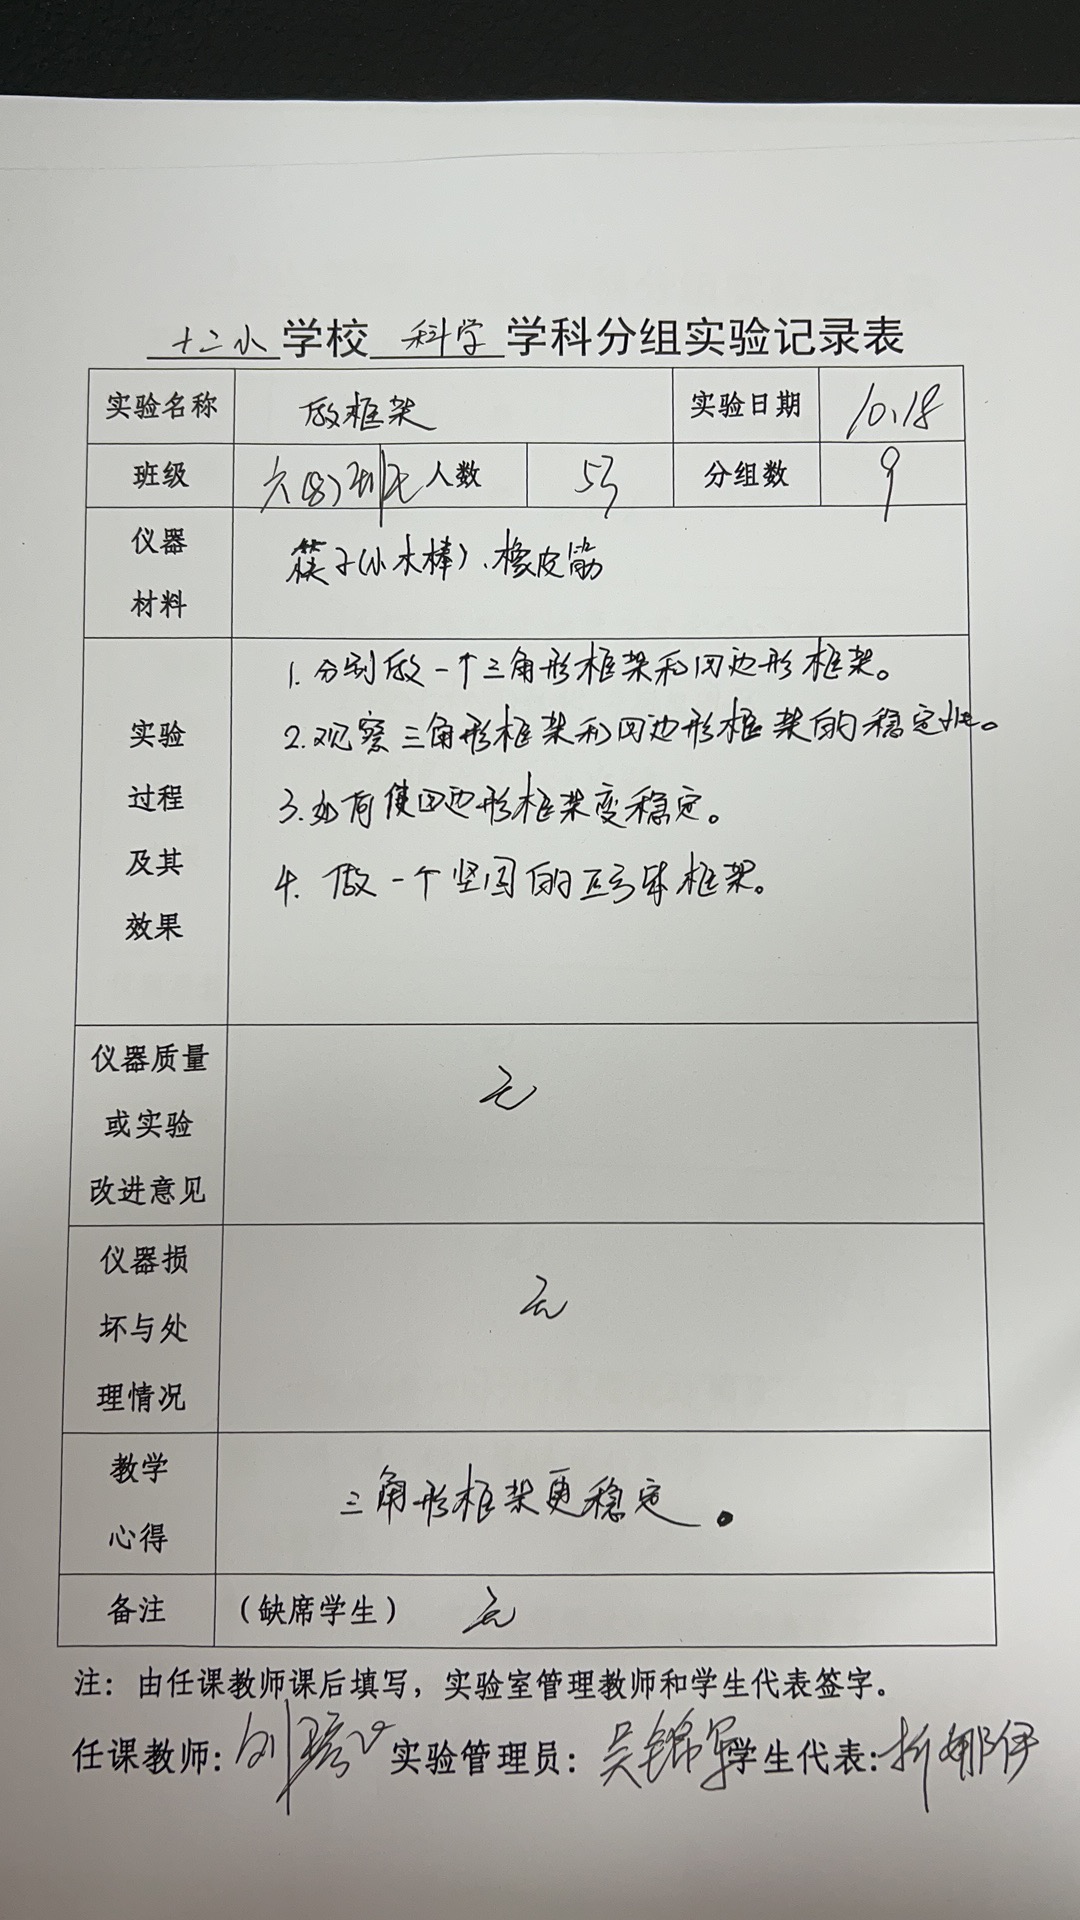 十二小学校 科学 学科分组实验记录表
实验名称 做框架 实验日期 10.18
班级 六(8) 人数 53 分组数 9
仪器
材料
筷子(小木棒)、橡皮筋
实验
过程
及其
效果
1. 分别做一个三角形框架和四边形框架。
2. 观察三角形框架和四边形框架的稳定性。
3. 如何使四边形框架变稳定。
4. 做一个坚固的立方体框架。
仪器质量
或实验
改进意见
无
仪器损
坏与处
理情况
无
教学
心得
三角形框架更稳定。
备注 (缺席学生) 无
注：由任课教师课后填写，实验室管理教师和学生代表签字。
任课教师: 刘 实验管理员: 吴锦军 学生代表: